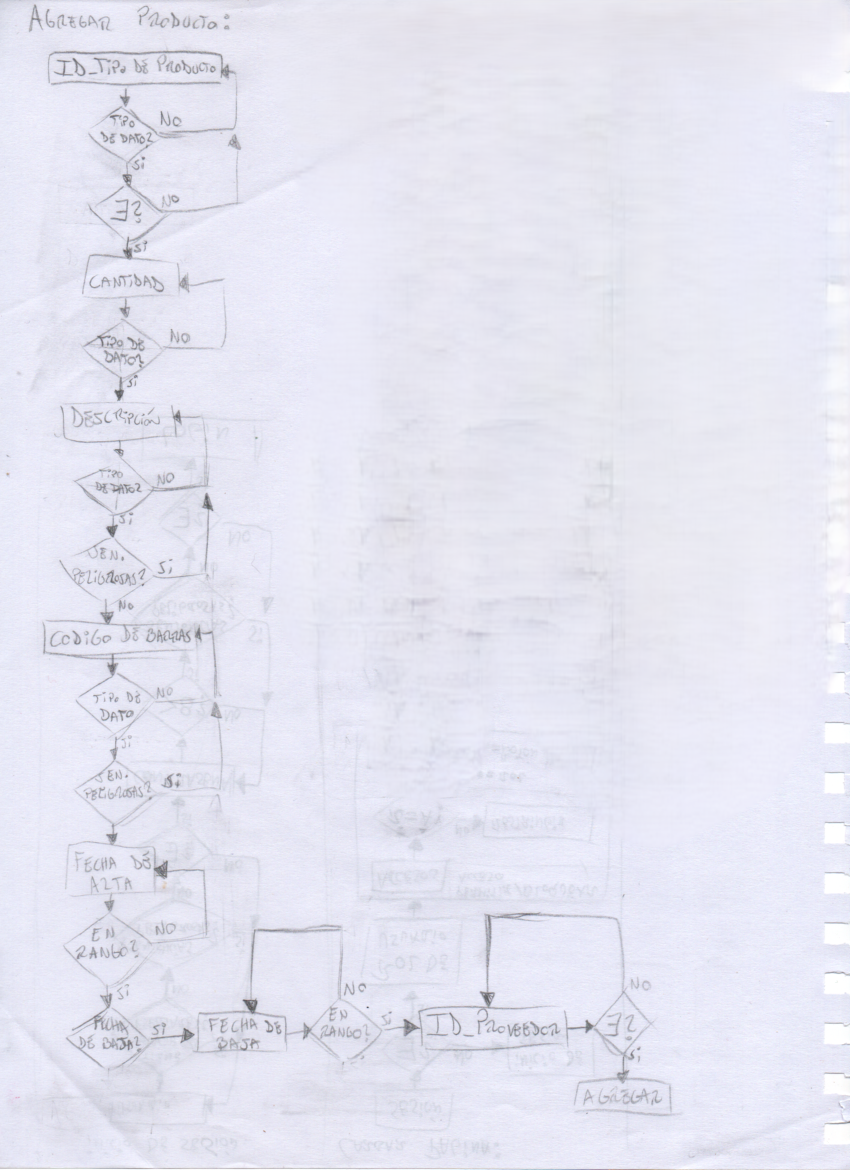 AGREGAR PRODUCTO:
ID_TIPO DE PRODUCTO
TIPO
DE DATO?
NO
Si
∃?
NO
Si
CANTIDAD
TIPO DE
DATO?
NO
Si
DESCRIPCIÓN
TIPO
DE DATO?
NO
Si
SEN.
PELIGROSAS?
Si
NO
CODIGO DE BARRAS
TIPO DE
DATO
NO
Si
SEN.
PELIGROSAS?
Si
FECHA DE
ALTA
EN
RANGO?
NO
Si
FECHA
DE BAJA?
Si
FECHA DE
BAJA
EN
RANGO?
NO
Si
ID_PROVEEDOR
∃?
NO
Si
AGREGAR